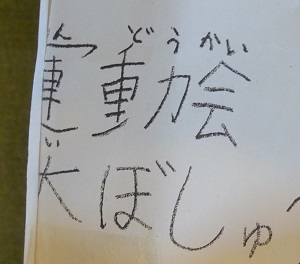 どうかい
運動会
い
大ぼしゅ